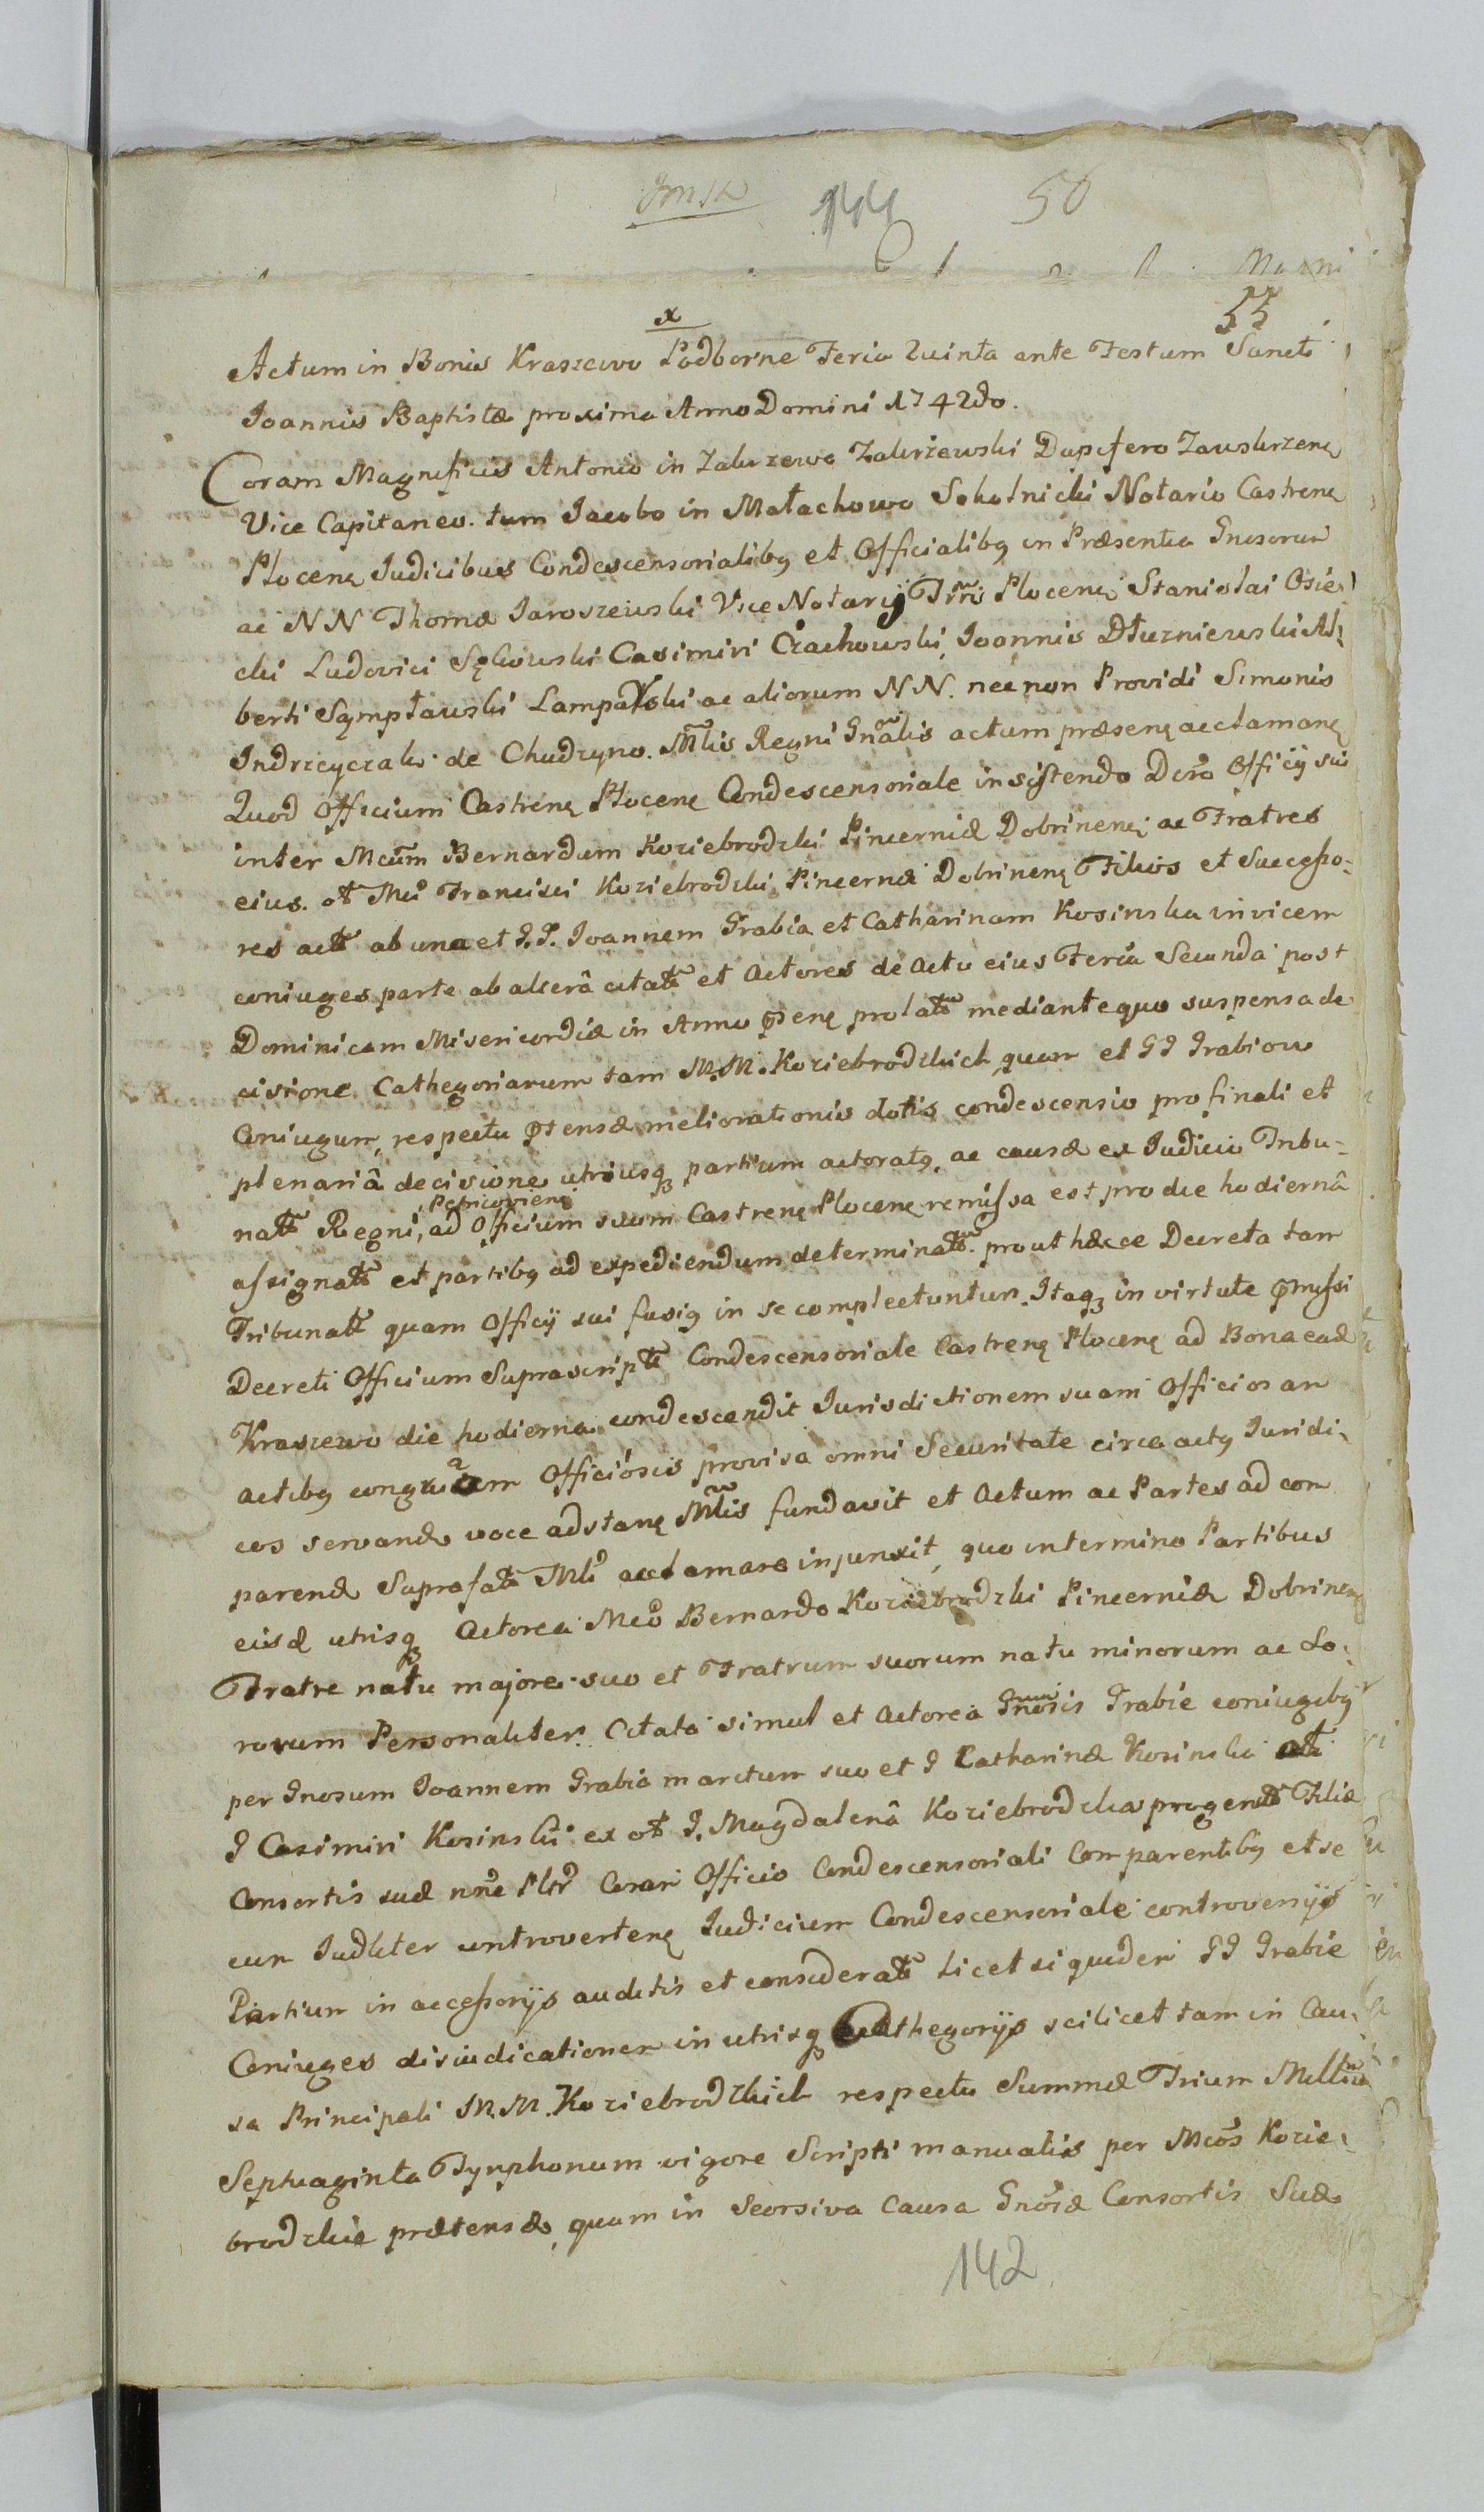 144 50
55
x
Actum in Bonis Kraszewo Podborne Feria Quinta ante Festum Sancti
Joannis Baptistæ proxima Anno Domini 1742do.
Coram Magnificis Antonio in Zakrzewo Zakrzewski Dapifero Zawskrzenę
Vice Capitaneo. tum Jacobo in Małachowo Sokolnicki Notario Castrenę
Plocenę Judicibus Condescensorialibꝯ et Officialibꝯ in Præsentia Gnosorum
ac NN Thomæ Jaroszewski Vice Notarij Trrīs Plocenę Stanislai Osie-
cki Ludovici Sękowski Casimiri Czachowski, Joannis Dłuzniewski Al-
berti Sępławski Lamparski ac aliorum NN. necnon Providi Simonis
Jndrzeyczak de Chudzyno. Mlis Regni Gnālis actum præsenę acclamanę
Quod Officium Castrenę Plocenę Condescensoriale insistendo Decro Officij sui
inter Mcum Bernardum Koziebrodzki Pincernidæ Dobrinenę ac Fratres
eius. ot Mci Francisci Koziebrodzki Pincernæ Dobrinenę Filios et Successo-
res actt ab una et G.G. Joannem Grabia et Catharinam Kosinska invicem
coniuges parte ab alterâ citatt et Actores de Actu eius Feria Secunda post
Dominicam Misericordiæ in Anno p̃senę prolatt mediante quo suspensa de
cisione Cathegoriarum tam M.M. Koziebrodzkich quam et GG Grabiow
Coniugum, respectu p̃tensæ meliorationis dotis condescensio pro finali et
plenariâ decisione utriusqꝫ partium actoratꝯ, ac causæ ex Judicio Tribu-
Petricovienę
natt Regni, ad Officium suum Castrenę Plocenę remissa est pro die hodiernâ
assignatt et partibꝯ ad expediendum determinatt. prout hæcce Decreta tam
Tribunatt quam Officij sui fusiꝯ in se complectuntur. Itaqꝫ in virtute p̃missi
Decreti Officium Suprascriptt Condescensoriale Castrenę Plocenę ad Bona ead
Kraszewo die hodierna condescendit Jurisdictionem suam Officiosam
actibꝯ congruam Officiosis provisa omni Securitate circa actꝯ Juridi-
cos servandæ voce adstanę Mlis fundavit et Actum ac Partes ad com
parend Suprafatt Mli acclamare injunxit, quo in termino Partibus
eisd utrisqꝫ Actorea Mco Bernardo Koziebrodzki Pincernidæ Dobrinenę
Fratre natu majore suo et Fratrum suorum natu minorum ac So-
rorum Personaliter. Citata simul et Actorea Gnosis Grabie coniugibꝯ
per Gnosum Joannem Grabia maritum suo et G Catharinæ Kosinska ott
G Casimiri Kosinski ex ot G. Magdalenâ Koziebrodzka progenitt Filiæ
Consortis suæ nñe Pltr Coram Officio Condescensoriali Comparentibꝯ et se
cum Judliter controvertenę Judicium Condescensoriale controversijs
Partium in accessorijs auditis et consideratt licet siquidem GG Grabie
Coniuges disiudicationem in utrisqꝫ Cathegorijs scilicet tam in Cau-
sa Principali M.M. Koziebrodzkich respectu Summæ Trium Millium
Septuaginta Tynphonum vigore Scripti manualis per Mcos Kozie-
brodzkie prætensæ, quam in Seorsiva Causa Gnosæ Consortis Suæ
142